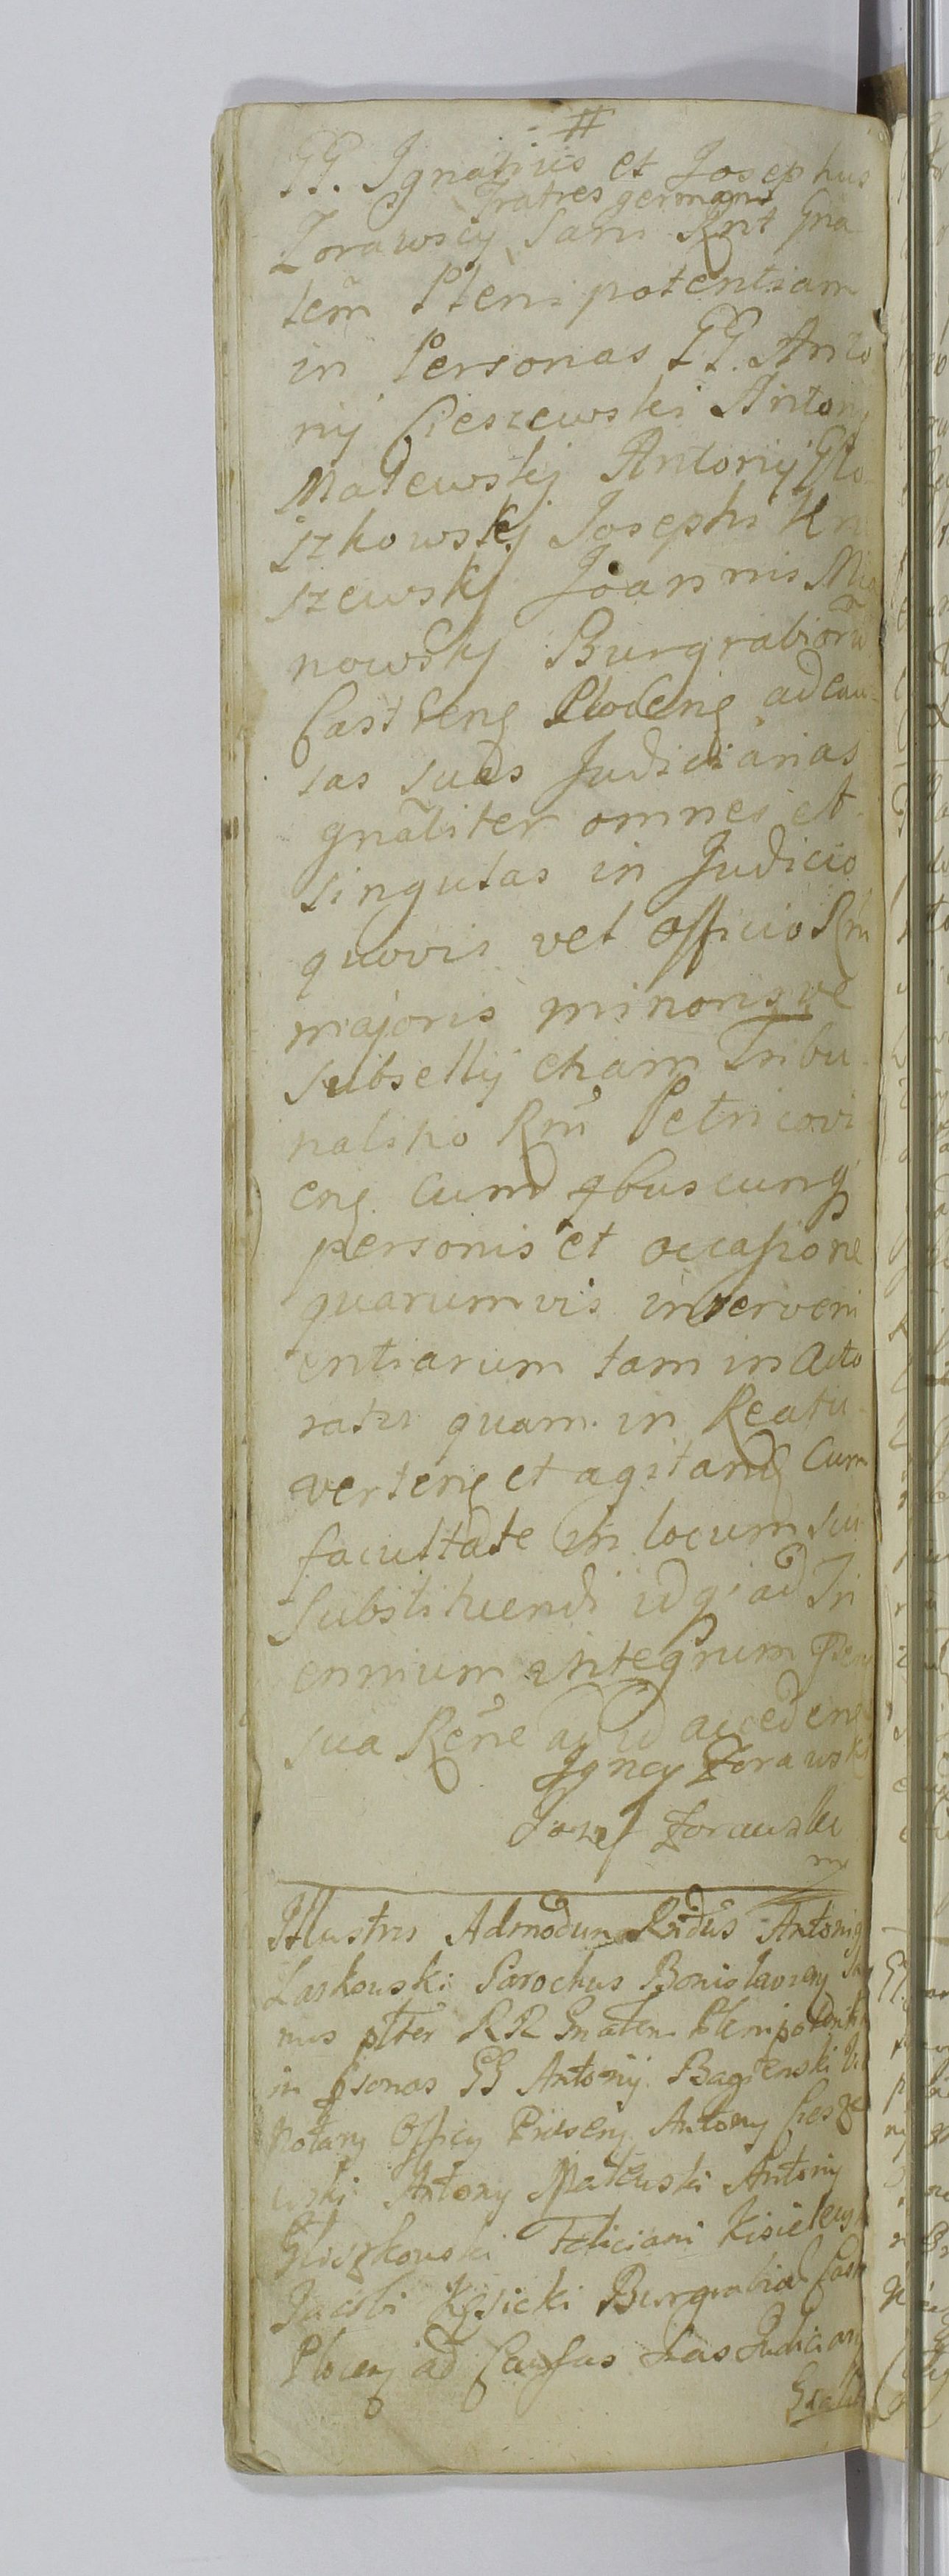 #
GG. Ignatius et Josephus
Fratres germani
Zorawscy Sani Rnt Gna
lem Plenipotentiam
in Personas GG. Anto
nij Cieszewski Antonij
Małewskij Antonij Glo
szkowskij Josephi Kru
szewskij Joannis Mia
nowskij Burgrabiorũ
Castreng Ploceng ad cau-
sas suas Judiciarias
gnãliter omnes et
singulas in Judicio
quovis vel officio Rni
majoris minorisve
subsellij etiam Tribu
nalitio Rni Petricovi
eng. Cum qbuscunq
personis et occasione
quarumvis interveni
entiarum tam in Acto
ratu quam in Reatu
verteng et agitand Cum
facultate in locum sui
Substituendi idq ad Tri
ennium integrum
sua Rẽne ad id acceden
Jgnacy Zorawski
Jozef Zorawski
mp
Illustris Admodum Rndus Antonig
Laskowski Parochus Bonislavieng Sa
nus plter RR Gnalem Plenipotentia
in psonas GG Antonij Bagienski Vice
Notarij Officij Antonij Ciesze
wski Antony Małewski Antonij
Gloszkowski Feliciani Kisielewski
Jacobi Kęsicki Burgrabior Castr
Ploceng ad Causas suas Judiciarias
Gnalit